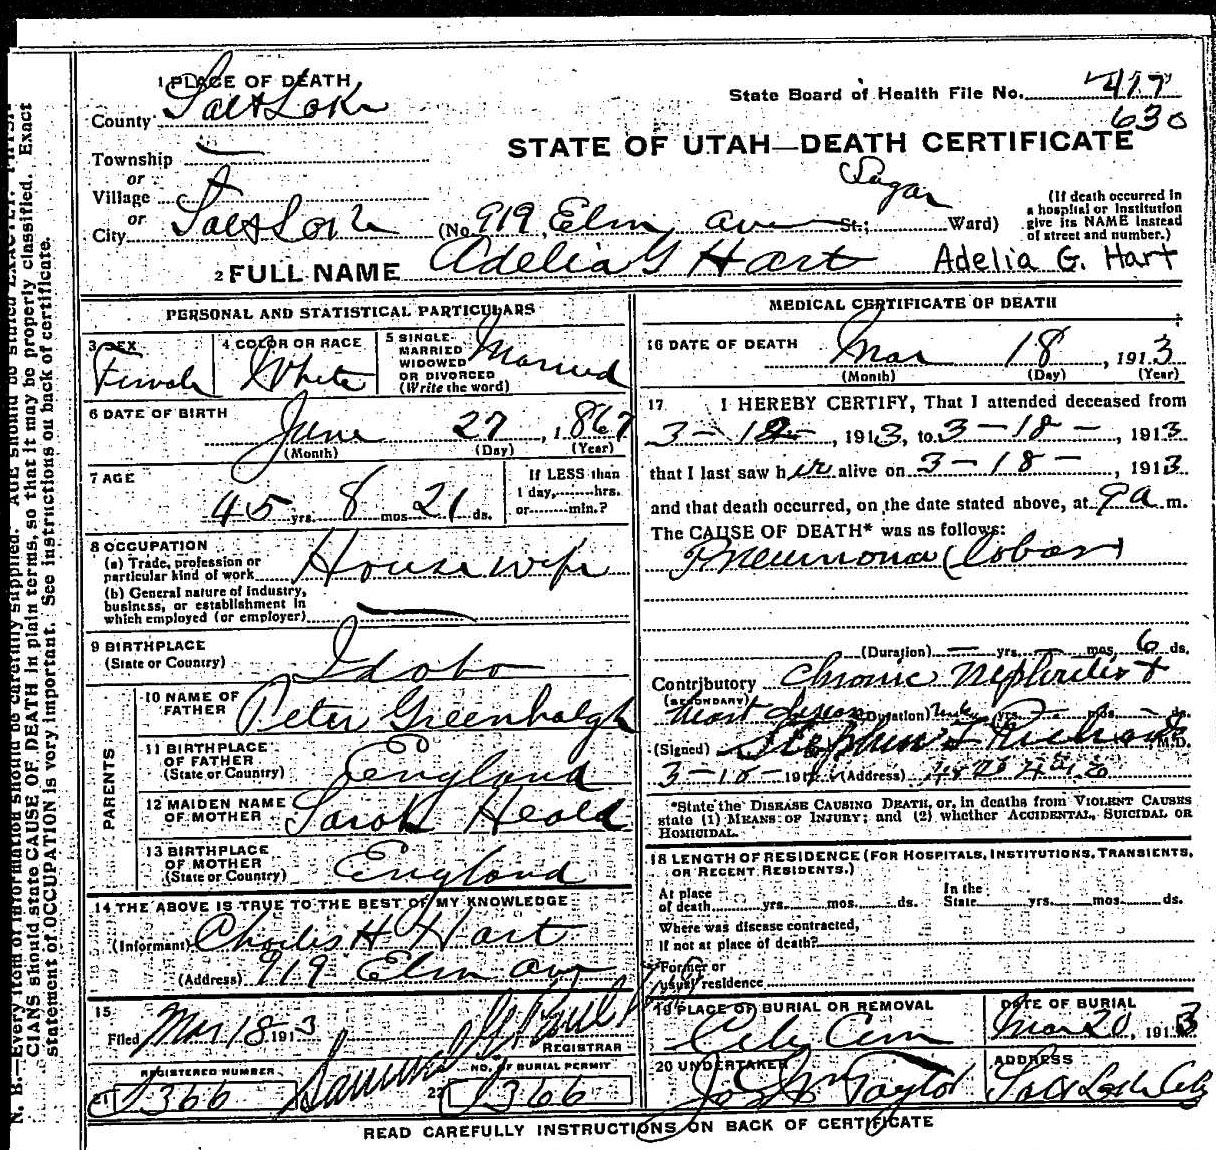 1 PLACE OF DEATH
County Salt Lake
State Board of Health File No. 417
630
Township —
or
Village
or
City Salt Lake
STATE OF UTAH—DEATH CERTIFICATE
(No. 919 Elm ave St.; Sugar Ward)
(If death occurred in
a hospital or institution
give its NAME instead
of street and number.)
2 FULL NAME Adelia G Hart Adelia G. Hart
PERSONAL AND STATISTICAL PARTICULARS
3 SEX
Female
4 COLOR OR RACE
White
5 SINGLE
MARRIED
WIDOWED
OR DIVORCED
(Write the word)
Married
6 DATE OF BIRTH
June 27, 1867
(Month) (Day) (Year)
7 AGE
45 yrs. 8 mos. 21 ds.
If LESS than
1 day,........hrs.
or........min.?
8 OCCUPATION
(a) Trade, profession or
particular kind of work Housewife
(b) General nature of industry,
business, or establishment in
which employed (or employer) —
9 BIRTHPLACE
(State or Country) Idaho
PARENTS
10 NAME OF
FATHER Peter Greenhalgh
11 BIRTHPLACE
OF FATHER
(State or Country) England
12 MAIDEN NAME
OF MOTHER Sarah Heald
13 BIRTHPLACE
OF MOTHER
(State or Country) England
14 THE ABOVE IS TRUE TO THE BEST OF MY KNOWLEDGE
(Informant) Charles H Hart
(Address) 919 Elm ave
15
Filed Mar 18 1913
Samuel G. Paul
REGISTRAR
REGISTERED NUMBER
21 J366
NO. OF BURIAL PERMIT
22 J366
MEDICAL CERTIFICATE OF DEATH
16 DATE OF DEATH
Mar 18, 1913
(Month) (Day) (Year)
17 I HEREBY CERTIFY, That I attended deceased from
3-12-, 1913, to 3-18-, 1913
that I last saw her alive on 3-18-, 1913
and that death occurred, on the date stated above, at 9 a m.
The CAUSE OF DEATH* was as follows:
Pneumonia (lobar)
(Duration) — yrs. — mos. 6 ds.
Contributory Chronic Nephritis +
(SECONDARY)
heart disease (Duration) yrs. — mos. — ds.
(Signed) Stephen L Richards M.D.
3-18-191 (Address)
*State the DISEASE CAUSING DEATH, or, in deaths from VIOLENT CAUSES
state (1) MEANS OF INJURY; and (2) whether ACCIDENTAL, SUICIDAL OR
HOMICIDAL.
18 LENGTH OF RESIDENCE (FOR HOSPITALS, INSTITUTIONS, TRANSIENTS,
OR RECENT RESIDENTS.)
At place
of death........yrs.......mos.......ds.
In the
State........yrs.......mos.......ds.
Where was disease contracted,
if not at place of death?
Former or
usual residence
19 PLACE OF BURIAL OR REMOVAL
City Cem
DATE OF BURIAL
Mar 20, 1913
20 UNDERTAKER
Jos Wm Taylor
ADDRESS
Salt Lake City
READ CAREFULLY INSTRUCTIONS ON BACK OF CERTIFICATE
N. B.—Every item of information should be carefully supplied. AGE should be stated EXACTLY. PHYSI-
CIANS should state CAUSE OF DEATH in plain terms, so that it may be properly classified. Exact
statement of OCCUPATION is very important. See instructions on back of certificate.